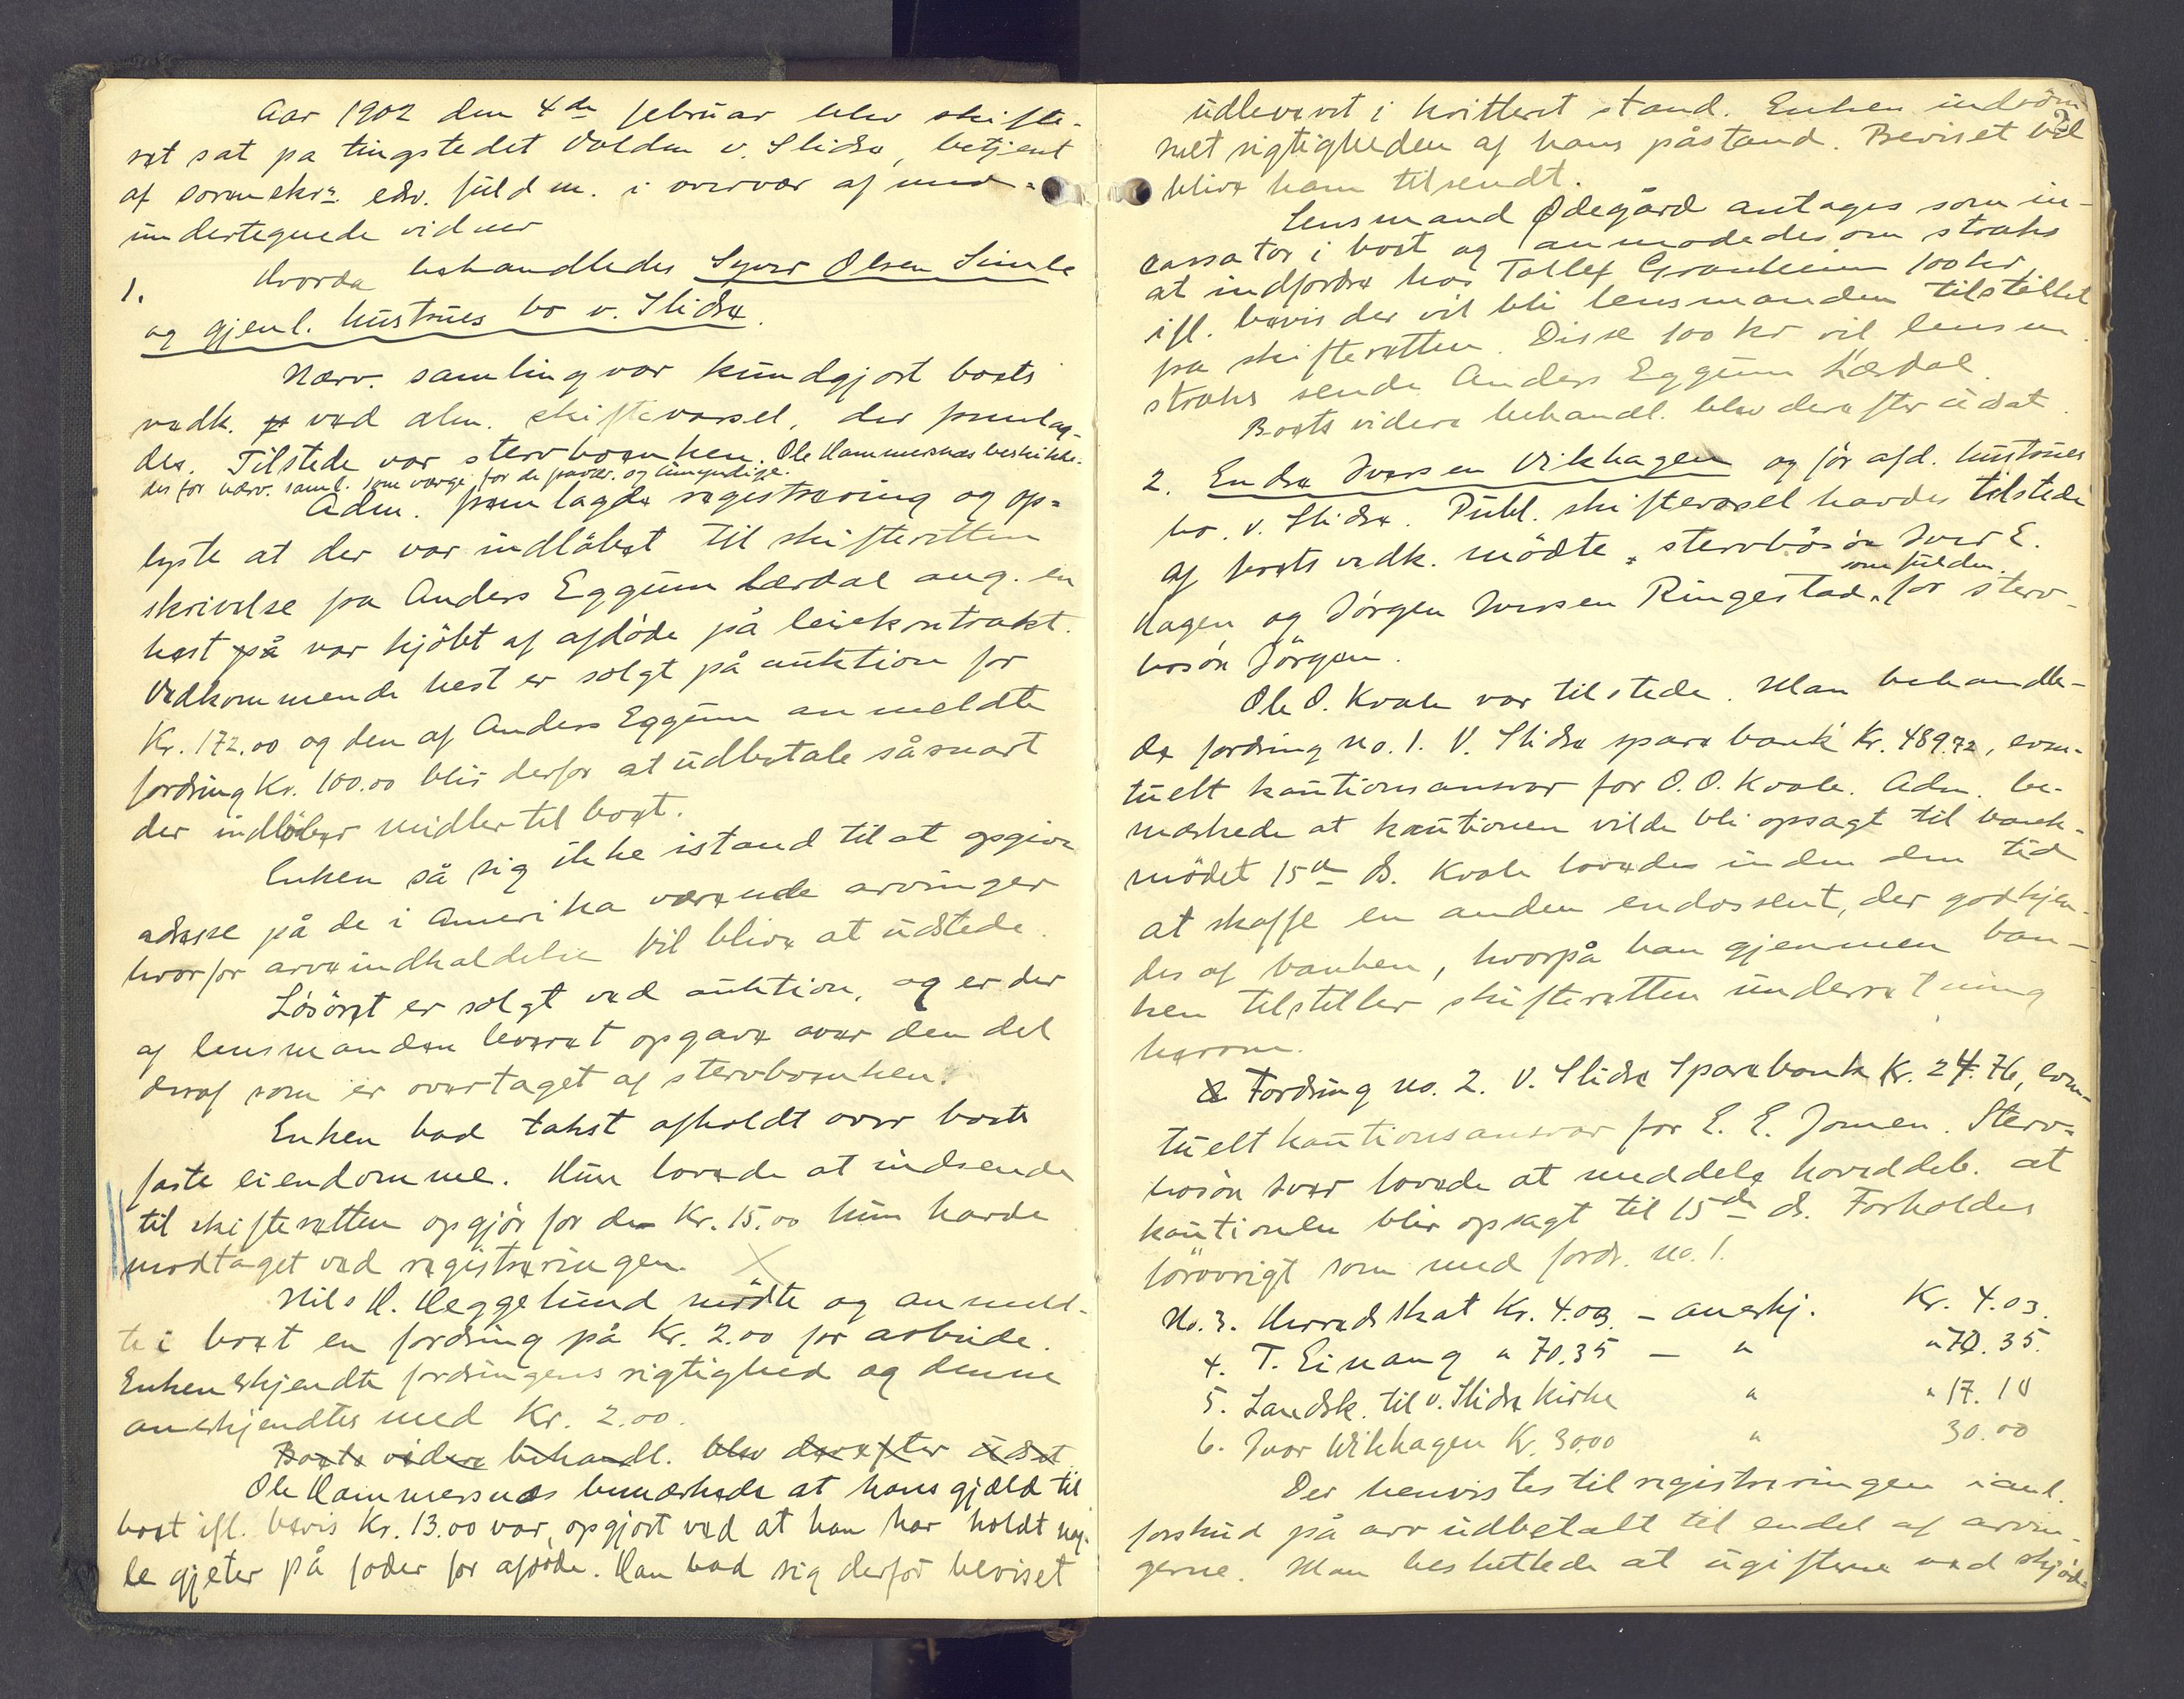 Aar 1902 den 4de februar blev skifte-
ret sat på tingstedet Volden v. Slidre, betjent
af sorenskrs. edsv. fuldm. i overvær af med-
undertegnede vidner
1. Hvorda behandledes Syver Olsen Simle
og gjenl. hustrues bo v. Slidre.
Nærv. samling var kundgjort boets
vedk. ved alm. skiftevarsel, der fremlag-
des. Tilstede var stervboenken. Ole Hammersnes beskikke-
des for nærv. saml. som værge for de fravær. og umyndige.
Adm. fremlagde registrering og op-
lyste at der var indløbet til skifteretten
skrivelse fra Anders Eggum Lærdal ang. en
hest på var kjöbt af afdøde på leiekontrakt.
Vedkommende hest er solgt på auktion for
Kr. 172.00 og den af Anders Eggum anmeldte
fordring Kr. 100.00 blir derfor at udbetale såsnart
der indløber midler til boet.
Enken så sig ikke istand til at opgive
adresse på de i Amerika værende arvinger
hvorfor arveindkaldelse vil blive at udstede.
Løsöret er solgt ved auktion, og er der
af lensmanden leveret opgave over den del
deraf som er overtaget af stervboenken.
Enken bad takst afholdt over boets
faste eiendomme. Hun lovede at indsende
til skifteretten opgjör for de Kr. 15.00 hun havde
modtaget ved registreringen.
Nils H. Heggelund mödte og anmeld-
te i boet en fordring på Kr. 2.00 for arbeide.
Enken erkjendte fordringens rigtighed og denne
anerkjendtes med Kr. 2.00.
Boets videre behandl. blev derefter udsat
Ole Hammersnes bemærkede at hans gjæld til
boet ifl. bevis Kr. 13.00 var opgjort ved at han har holdt nog-
le gjeter på foder for afdøde. Han bad sig derfor beviset
2
udleveret i kvitteret stand. Enken indröm-
met rigtigheden af hans påstand. Beviset vil
blive ham tilsendt.
Lensmand Ødegård antages som in-
cassator i boet og anmodedes om straks
at indfordre hos Tollef Granheim 100 kr
ifl. bevis der vil bli lensmanden tilstillet
fra skifteretten. Disse 100 kr vil lensm.
straks sende Anders Eggum Lærdal.
Boets videre behandl. blev derefter udsat.
2. Endre Iversen Vikhagen og før afd. hustrues
bo. v. Slidre. Publ. skiftevarsel havdes tilstede
af boets vedk. mödte stervbösön Iver E.
som fuldm.
Hagen og Jörgen Iversen Ringestad for sterv-
bosön Jörgen.
Ole O. Kvale var tilstede. Man behandle-
de fordring no. 1. V. Slidre sparebank Kr. 489.72, even-
tuelt kautionsansvar for O. O. Kvale. Adm. be-
mærkede at kautionen vilde bli opsagt til bank-
mödet 15de ds. Kvale lovedes inden den tid
at skaffe en anden endossent, der godkjen-
des af banken, hvorpå han gjennem ban-
ken tilstiller skifteretten underretning
herom.
Fordring no. 2. V. Slidre Sparebank Kr. 24.76, even-
tuelt kautionsansvar for E. E. Jomen. Sterv-
bosön Iver lovede at meddele hoveddeb. at
kautionen blir opsagt til 15de ds. Forholdes
forövrigt som med fordr. no. 1.
No. 3. Herredskat Kr. 4.03 – anerkj. Kr. 4.03.
4. T. Einang " 70.35 – " " 70.35.
5. Landsk. til v. Slidre kirke " " 17.10
6. Ivar Wikhagen Kr. 30.00 " 30.00
Der henvistes til registreringen i anl.
forskud på arv udbetalt til endel af arvin-
gerne. Man besluttede at ugifterne ved skjöd-